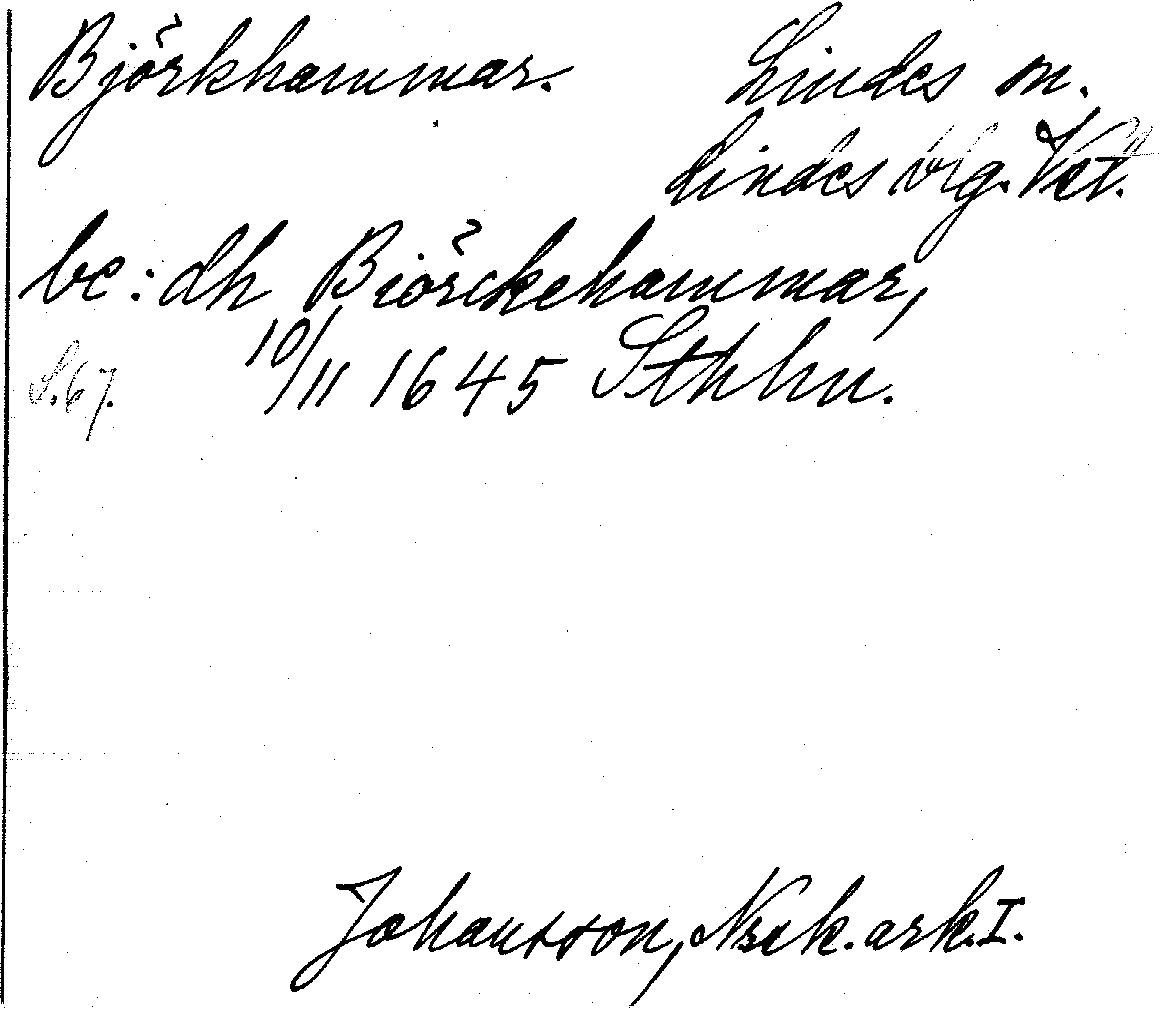 Björkhammar. Lindes sn.
Lindes blg. Vstm.
be: dh Biörckehammar,
S.67. 10/11 1645 Sthlm.
Johansson, Nsk. ark. I.